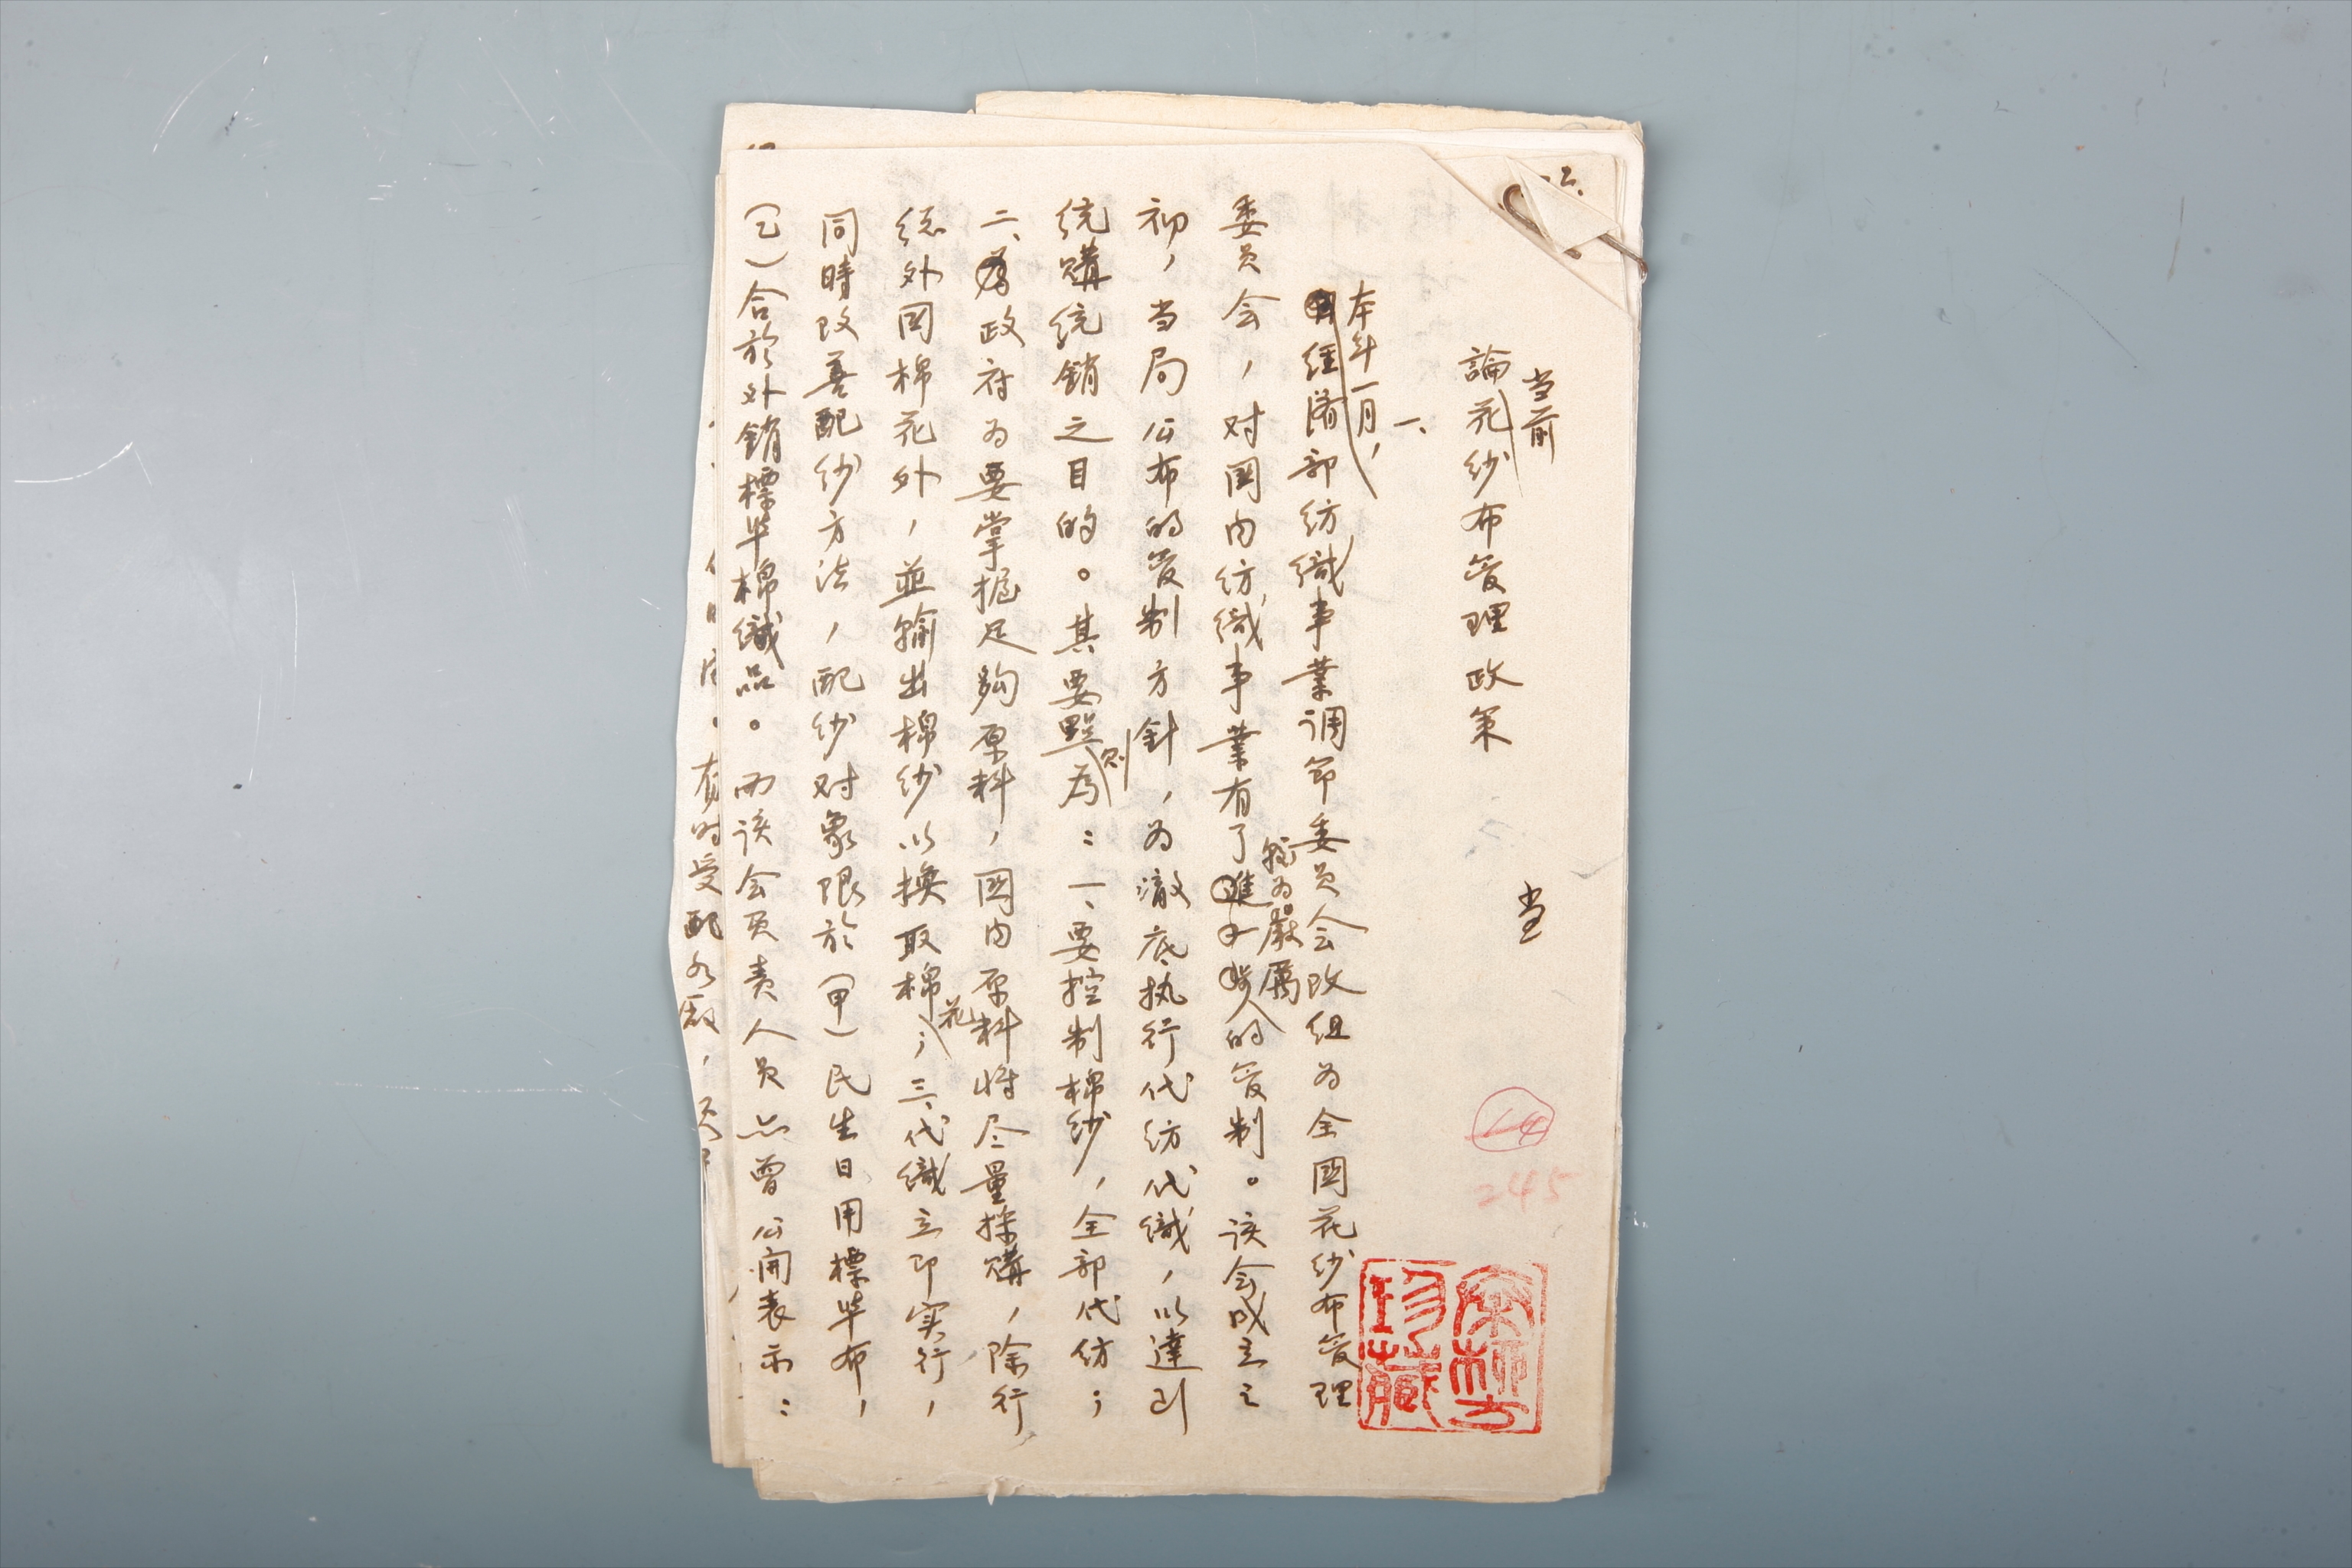 当前
論花纱布管理政策
当
一、
本年一月，
经济部纺織事業调节委员会改组为全國花纱布管理
委员会，对国内纺織事業有了較为嚴厲的管制。该会成立之
初，当局公布的管制方針，为澈底执行代纺代織，以達到
统購统銷之目的。其要點則為：一、要控制棉纱，全部代纺；
二、政府为要掌握足夠原料，國内原料将尽量採購，除行
总外国棉花外，並输出棉纱以换取棉花；三、代織立即实行，
同時改善配纱方法，配纱对象限於（甲）民生日用標準布，
（乙）合於外銷標準棉織品。而该会负责人员亦曾公開表示：
有时受配各厰，
14
245
珍藏